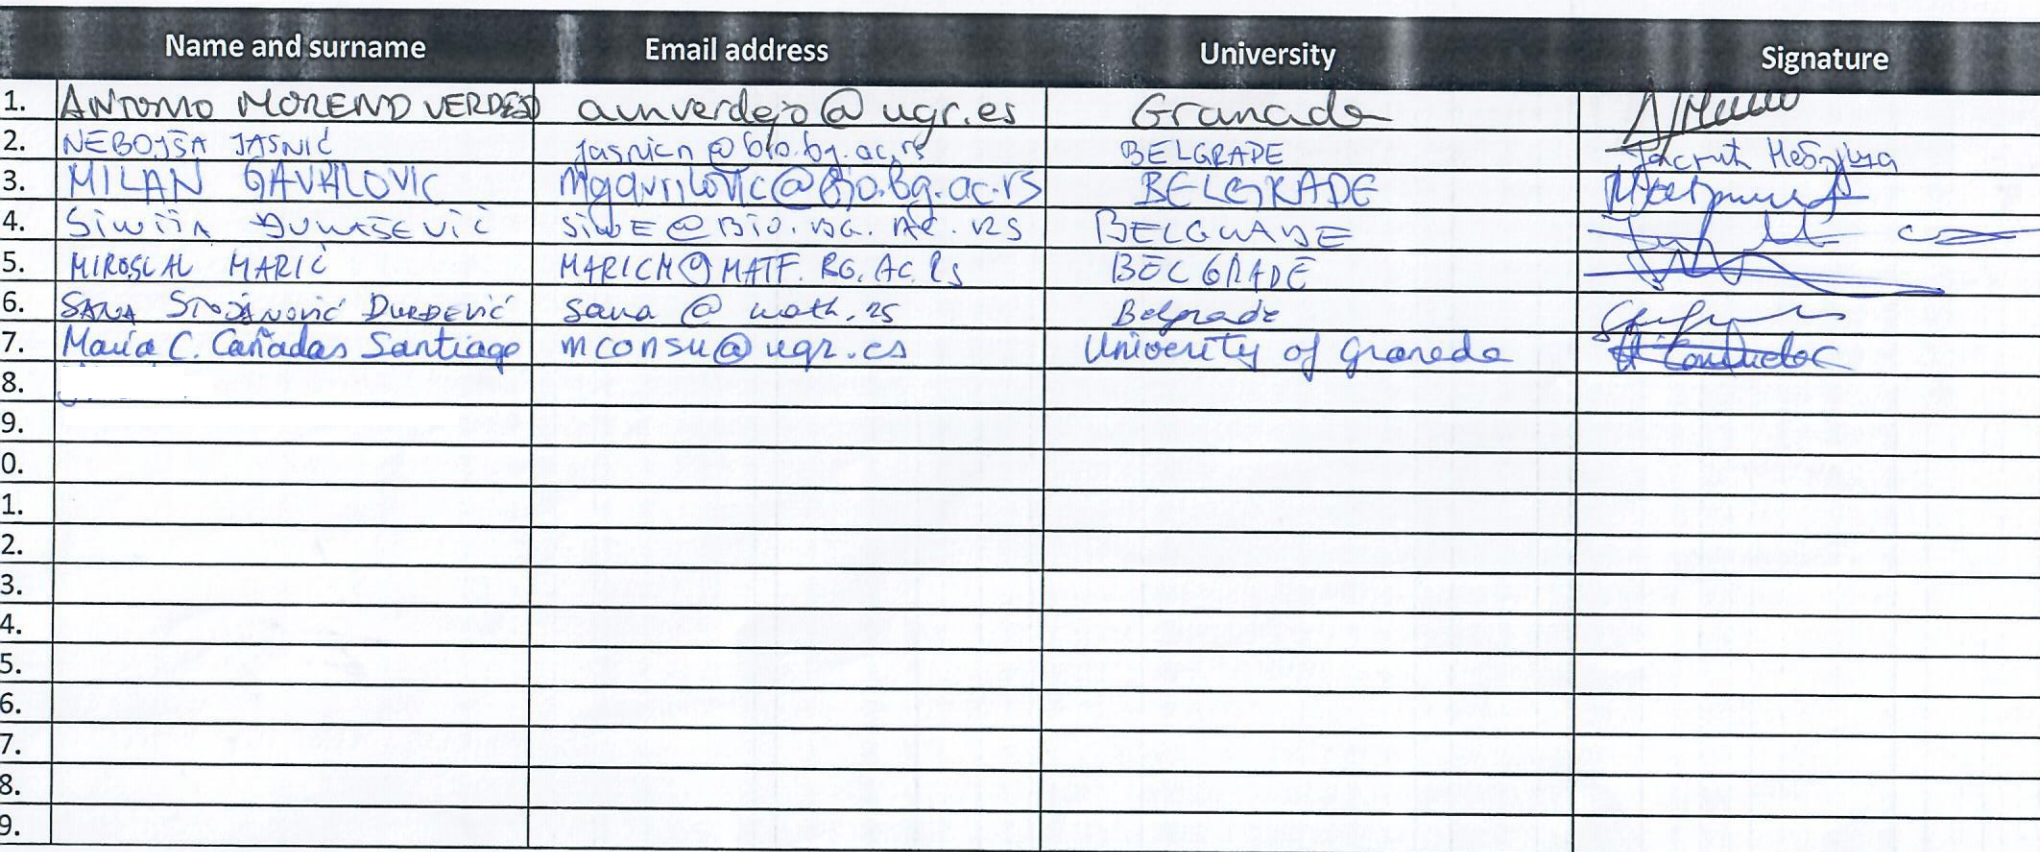 Name and surname Email address University Signature
1. ANTONIO MORENO VERDEJO amverdejo@ugr.es Granada
2. NEBOJŠA JASNIĆ jasnicn@bio.bg.ac.rs BELGRADE Јаснић Небојша
3. MILAN GAVRILOVIC mgavrilovic@bio.bg.ac.rs BELGRADE
4. SINIŠA ĐURAŠEVIĆ SINE@BIO.BG.AC.RS BELGRADE
5. MIROSLAV MARIĆ MARICM@MATF.BG.AC.RS BELGRADE
6. SANA STOJANOVIĆ ĐURĐEVIĆ sana@math.rs Belgrade
7. María C. Cañadas Santiago mconsu@ugr.es University of Granada
8.
9.
0.
1.
2.
3.
4.
5.
6.
7.
8.
9.